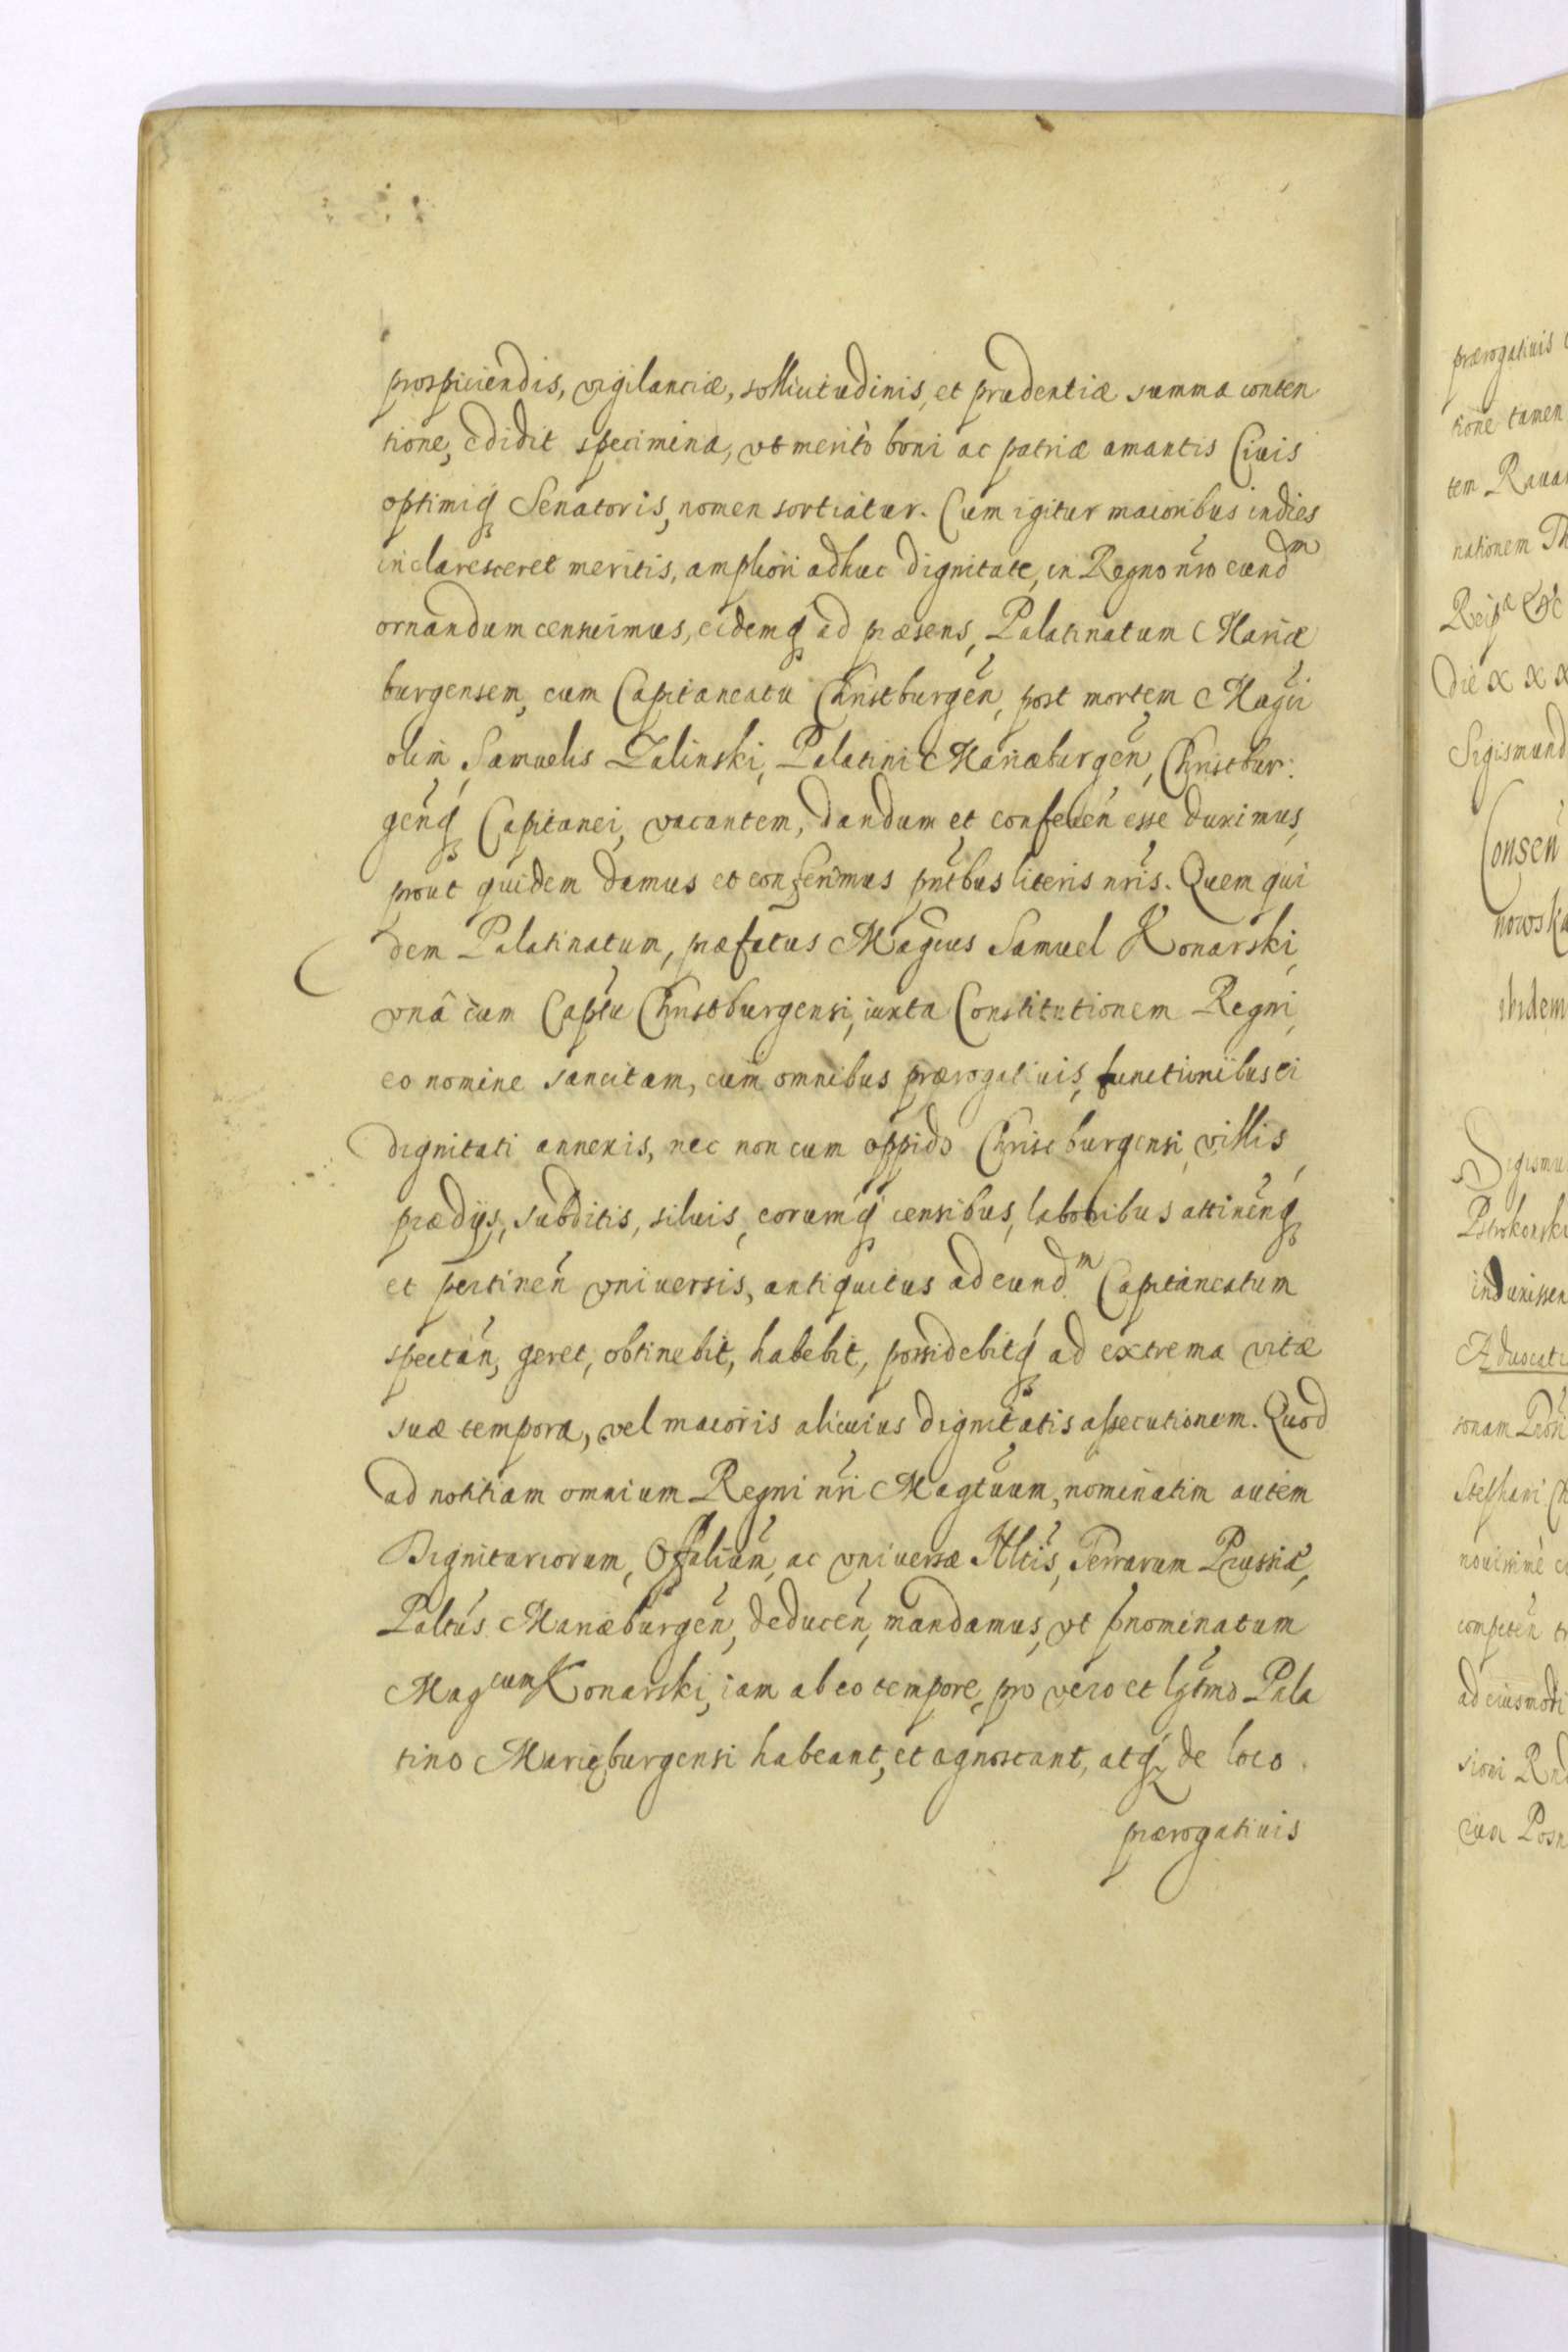 prospiciendis, vigilanciæ, sollicitudinis, et prudentiæ summa conten
tione, edidit specimina, vt meritò boni ac patriæ amantis Ciuis
optimiq₃ Senatoris, nomen sortiatur. Cum igitur maioribus indies
inclaresceret meritis, ampliori adhuc dignitate, in Regno nr̃o eundᵐ
ornandum censuimus, eidemq₃ ad præsens, Palatinatum Mariæ
burgensem, cum Capitaneatu Christburgeñ, post mortem Magc̃i
olim Samuelis Zalinski, Palatini Mariæburgeñ, Christbur:
geñq₃ Capitanei, vacantem, dandum et confereñ esse duximus,
prout quidem damus et conferimus pñtbus literis nr̃is. Quem qui
dem Palatinatum, præfatus Magc̃us Samuel Konarski,
vnâ cum Capt̃u Christburgensi, iuxta Constitutionem Regni,
eo nomine sancitam, cum omnibus prærogatiuis, functionibus ei
dignitati annexis, nec non cum oppido Christburgensi, villis,
prædijs, subditis, siluis, eorumq́₃ censibus, laboribus attineñq₃
et pertineñ vniuersis, antiquitus ad eundᵐ Capitaneatum
spectañ, geret, obtinebit, habebit, possidebitq́₃ ad extrema vitæ
suæ tempora, vel maioris alicuius dignitatis assecutionem. Quod
ad notitiam omnium Regni nr̃i Magt̃uum, nominatim autem
Dignitariorum, Offaliũm, ac vniuersæ Nltĩs, Terrarum Prussiæ,
Paltũs Mariæburgeñ, deduceñ, mandamus, vt p̃nominatum
Magᶜᵘᵐ Konarski, iam ab eo tempore, pro vero et lgt̃mo Pala
tino Mariæburgensi habeant, et agnoscant, atq₃ de loco
prærogatiuis
prærogatiuis
tione tamen
nationem
Die x x x
Conseñ
ibidem
sonam
nouissimè
competeñ
ad eiusmodi